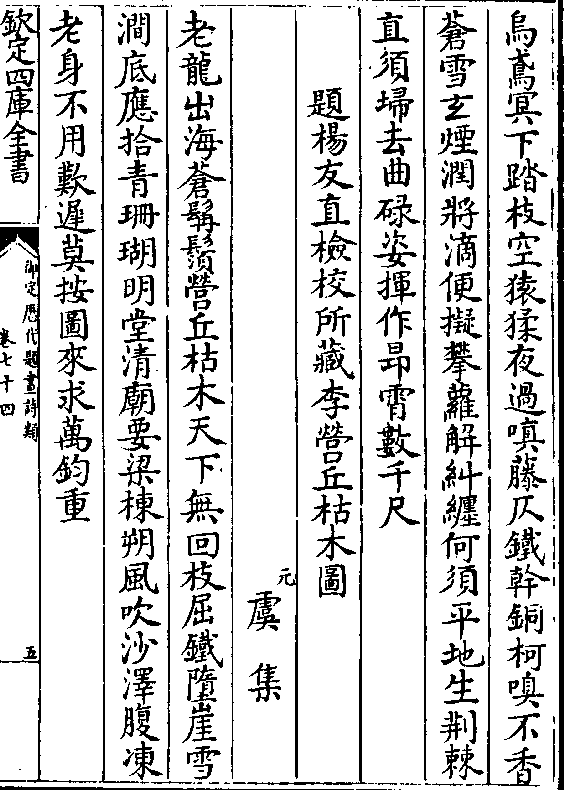 烏鳶冥下踏枝空猿猱夜過嗔藤仄鐵幹銅柯嗅不香
蒼雪玄煙潤將滴便擬攀蘿解糾纏何須平地生荆棘
直須埽去曲碌姿揮作昻霄數千尺
題楊友直檢校所藏李營丘枯木圖
元虞集
老龍出海蒼髯鬚營丘枯木天下無回枝屈鐵墮崖雪
澗底應拾青珊瑚明堂清廟要梁棟朔風吹沙澤腹凍
老身不用歎遲莫按圖來求萬鈞重
欽定四庫全書
御定歴代題畫詩類
卷七十四
五